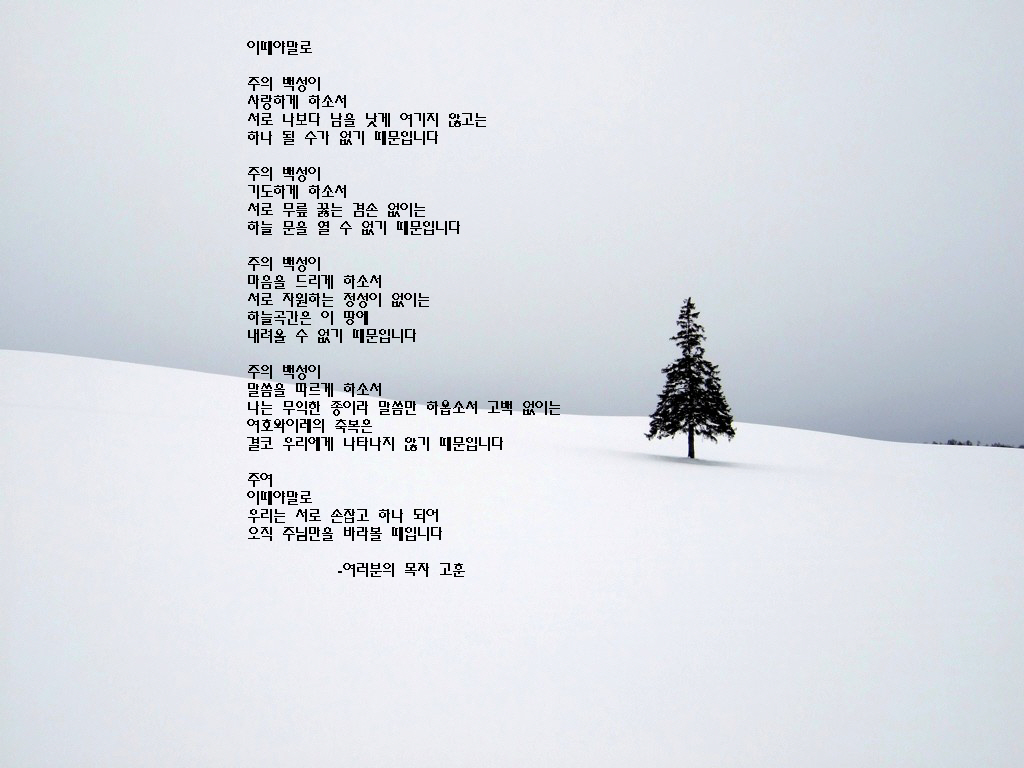 이때야말로
주의 백성이
사랑하게 하소서
서로 나보다 남을 낫게 여기지 않고는
하나 될 수가 없기 때문입니다
주의 백성이
기도하게 하소서
서로 무릎 꿇는 겸손 없이는
하늘 문을 열 수 없기 때문입니다
주의 백성이
마음을 드리게 하소서
서로 자원하는 정성이 없이는
하늘곡간은 이 땅에
내려올 수 없기 때문입니다
주의 백성이
말씀을 따르게 하소서
나는 무익한 종이라 말씀만 하옵소서 고백 없이는
여호와이레의 축복은
결코 우리에게 나타나지 않기 때문입니다
주여
이때야말로
우리는 서로 손잡고 하나 되어
오직 주님만을 바라볼 때입니다
-여러분의 목자 고훈